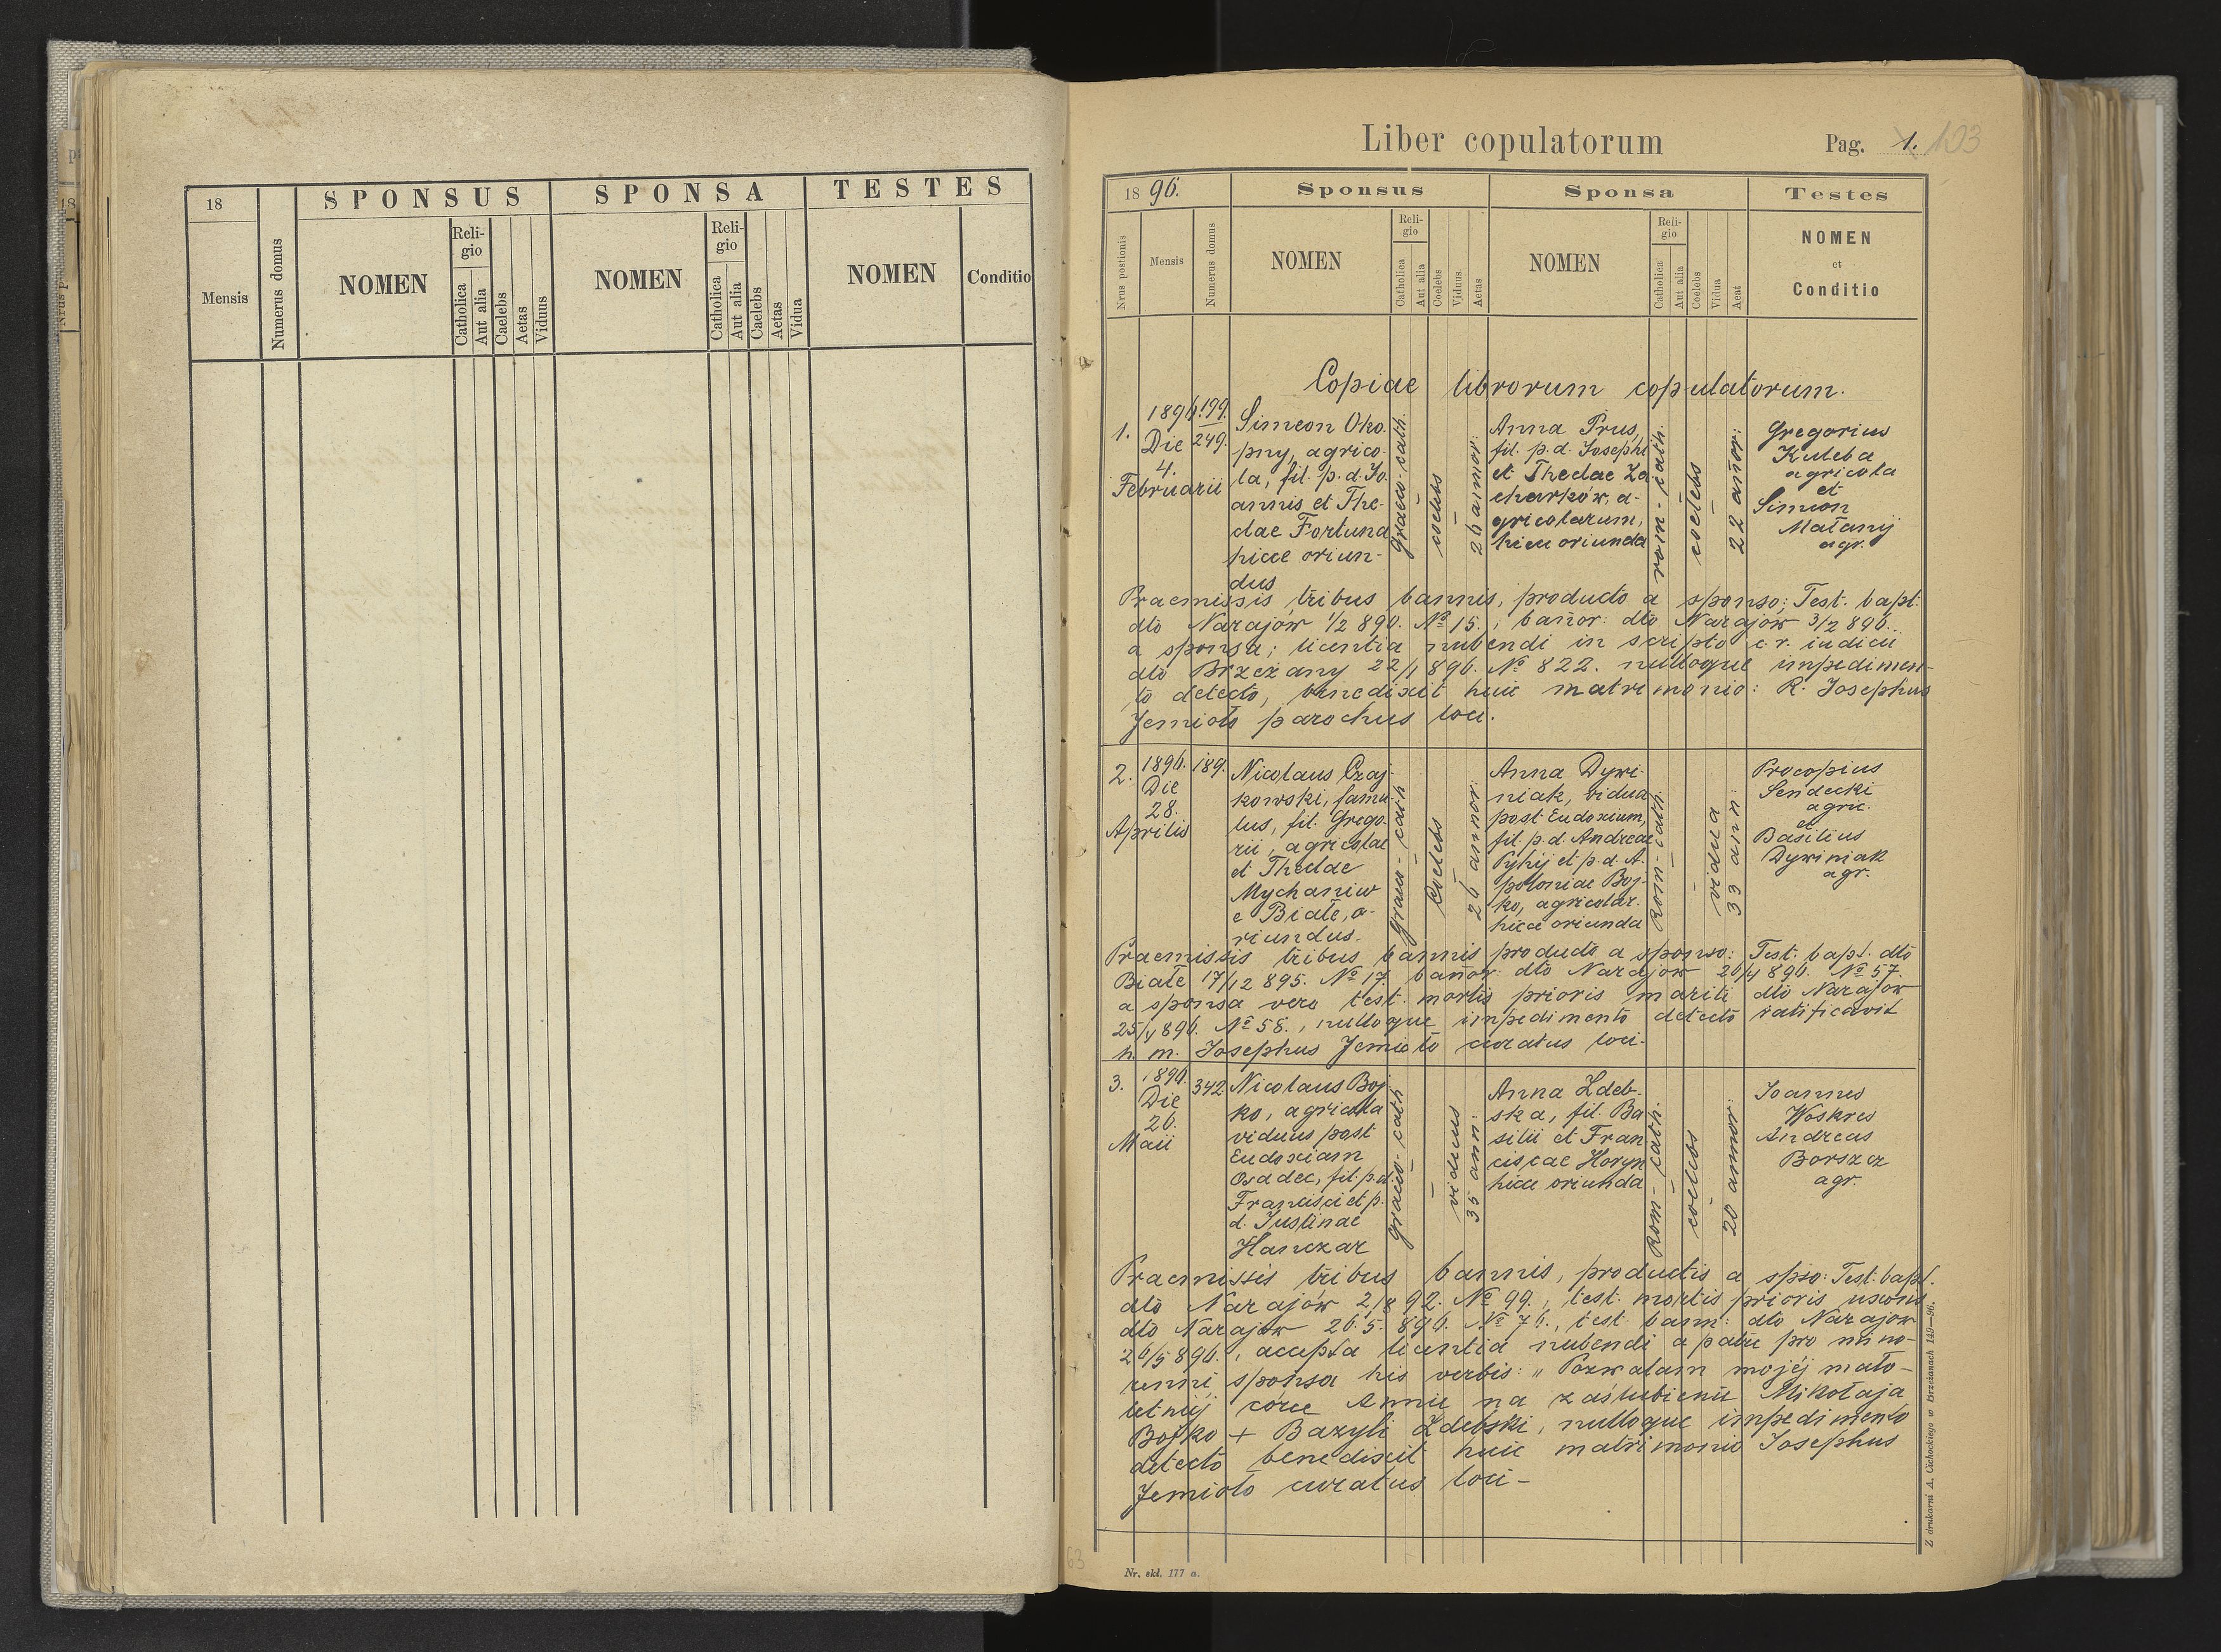 18
SPONSUS
SPONSA
TESTES
Mensis
Numerus domus
NOMEN
Reli-
gio
Catholica
Aut alia
Caelebs
Aetas
Viduus
NOMEN
Reli-
gio
Catholica
Aut alia
Caelebs
Aetas
Vidua
NOMEN
Conditio
Liber copulatorum
Pag. 1. 103
1896.
Sponsus
Sponsa
Testes
Nrus postionis
Mensis
Numerus domus
NOMEN
Reli-
gio
Catholica
Aut alia
Coelebs
Viduus
Aetas
NOMEN
Reli-
gio
Catholica
Aut alia
Coelebs
Vidua
Aeat
NOMEN
et
Conditio
Copiae librorum copulatorum.
1.
1896
Die
4.
Februarii
199.
249.
Simeon Oko-
pny, agrico-
la, fil. p. d. Jo-
annis et The-
clae Fortuna
hicce oriun-
dus
graeco-cath.
coelebs
26 annor:
Anna Prus,
fil. p. d. Josephi
et Theclae Za
charków, a-
gricolarum,
hicce oriunda
rom-cath.
coelebs
22 añor:
Gregorius
Kuleba
agricola
et
Simeon
Małanij
agr.
Praemissis tribus bannis, producto a sponso; Test. bapt.
dto Narajów 1/2 896. № 15.; bañor: dto Narajów 3/2 896.
a sponsa; licentia nubendi in scripto c. r. iudicii
dto Brzeżany 22/1 896. № 822. nulloque impedimen-
to detecto, benedixit huic matrimonio: R. Josephus
Jemioło parochus loci.
2.
1896.
Die
28.
Aprilis
189.
Nicolaus Czaj-
kowski, famu-
lus, fil. Grego-
rii, agricolae
et Theclae
Mychaniw
e Białe, o-
riundus.
graeco-cath
Coelebs
26 annor:
Anna Dywi-
niak, vidua
post Eudoxium,
fil. p. d. Andreae
Pyhij et p. d. A-
poloniae Boj-
ko, agricolar.
hicce oriunda
Rom-cath.
vidua
33 ann:
Procopius
Sendecki
agric.
et
Basilius
Dywiniak
agr.
Praemissis tribus bannis producto a sponso: Test. bapt. dto
Białe 17/12 895. № 17. bañor: dto Narajow 26/4 896. № 57.
a sponsa vero test. mortis prioris mariti dto Narajow
25/4 896. № 58., nulloque impedimento detecto ratificavit
h. m. Josephus Jemioło curatus loci.
3.
1896.
Die
26.
Maii
342
Nicolaus Boj-
ko, agricola
viduus post
Eudoxiam
Osadec, fil. p. d.
Francisci et p.
d. Justinae
Hanczar
graeco-cath.
viduus
35 ann:
Anna Zdeb-
ska, fil. Ba
silii et Fran
ciscae Horyn
hicce oriunda
Rom-cath.
coelebs
20 annor:
Joannes
Woskres
Andreas
Borszcz
agr.
Praemissis tribus bannis, productis a spso: Test. bapt.
dto Narajów 2/8 92. № 99., test. mortis prioris uxoris
dto Narajow 26. 5. 896. № 76., test. bann: dto Narajow
26/5 896., accepta licentia nubendi a patre pro mino-
renni sponsa his verbis: „Pozwalam mojéj mało-
letniéj córce Annie na zaślubienie Mikołaja
Bojko + Bazyli Zdebski, nulloque impedimento
detecto benedixit huic matrimonio Josephus
Jemioło curatus loci-
Nr. skł. 177 a.
Z drukarni A. Cichockiego w Brzeżanach 149—96.
63